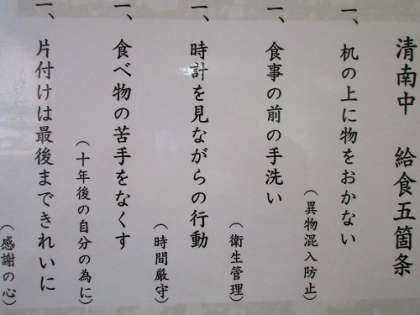 清南中 給食五箇条
一、机の上に物をおかない
(異物混入防止)
一、食事の前の手洗い
(衛生管理)
一、時計を見ながらの行動
(時間厳守)
一、食べ物の苦手をなくす
(十年後の自分の為に)
一、片付けは最後まできれいに
(感謝の心)